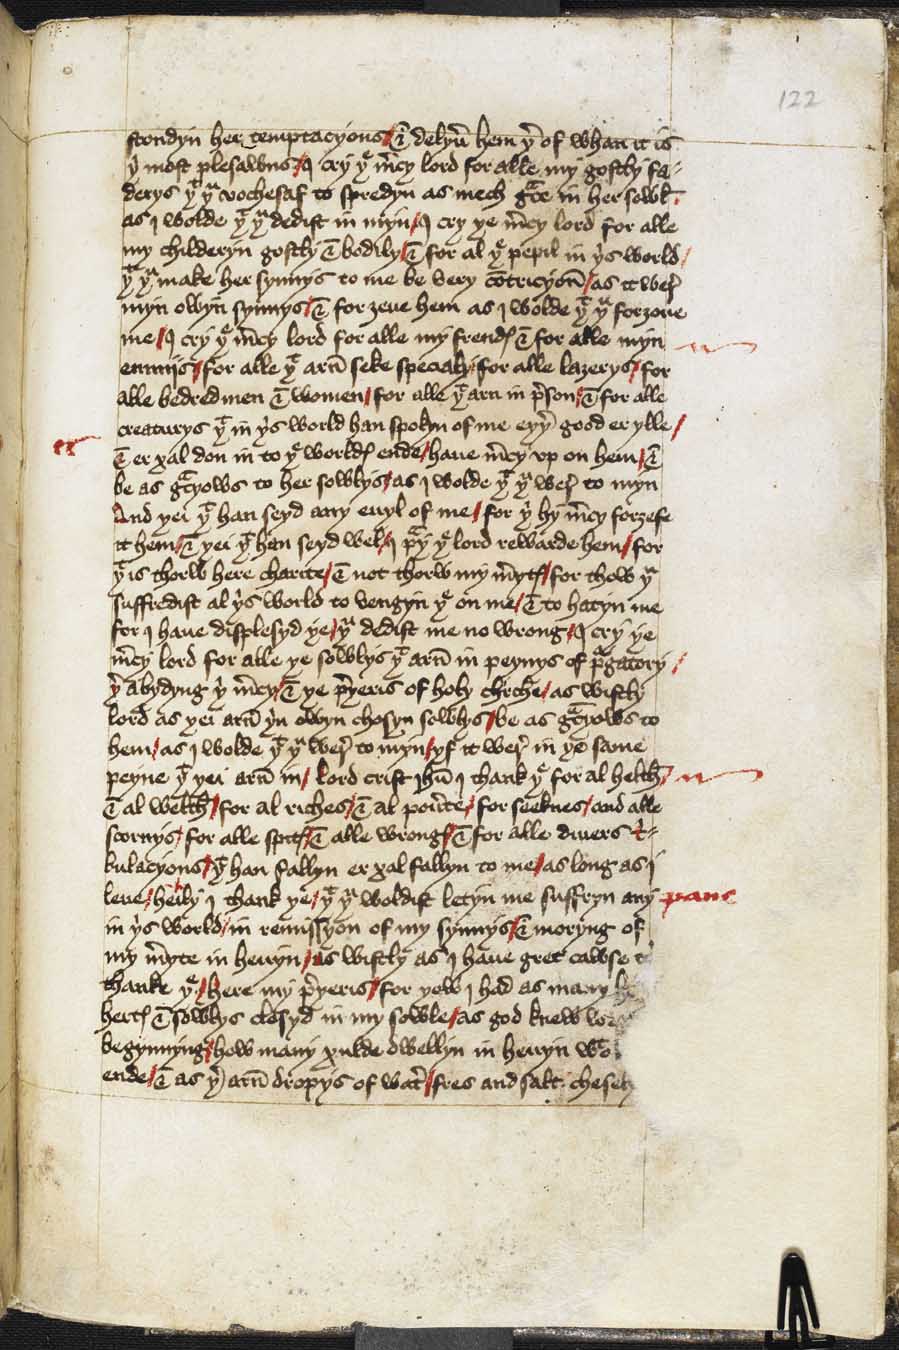 122
stondyn her temptacyons / & delyu̅ hem þͤ of whan it is
þi most plesawns / I cry yͤ m̅cy lord for alle my gostly fa-
derys yͭ yͧ vochesaf to spredyn as mech gͣce in her sowlꝭ
as I wolde yͭ yͧ dedist in myn / I cry ye m̅cy lord for alle
my childeryn gostly & bodily / & for al yͤ pepil in yis world /
yͭ yͧ make her synnys to me be very co̅tricyon̅ / as it werꝭ
myn owyn synnys / & forzeue hem as I wolde yͭ yͧ forzoue
me / I cry yͤ m̅cy lord for alle my frendꝭ & for alle myn
enmijs / for alle yͭ arn̅ seke specialy / for alle lazerys / for
alle bedred men & women / for alle yͭ arn in p̅son / & for alle
creaturys yͭ in yis world han spokyn of me eyy̅ good er ylle /
& er xal don in to yͤ worldꝭ ende / haue m̅cy vp on hem / &
be as gͣcyows to her sowlys / as I wolde yͭ yͧ werꝭ to myn
And yei yͭ han seyd any euyl of me / for yi hy m̅cy forzefe
it hem / & yei yͭ han seyd wel / I pͣy yͤ lord rewarde hem / for
yͭ is thorw here charite / & not thorw my m̅ytꝭ / for thow yͧ
suffredist al yis world to vengyn yͤ on me / & to hatyn me
for I haue displesyd ye / yͧ dedist me no wrong / I cry ye
m̅cy lord for alle ye sowlys yͭ arn̅ in peynys of p̅gatory /
yͤ abydyng yi m̅cy / & ye p̅yeris of holy chirche / as wistly
lord as yei arn̅ yin owyn chosyn sowlys / be as gͣcyows to
hem / as I wolde yͭ yͧ werꝭ to myn / yf it werꝭ in ye same
peyne yͭ yei arn̅ in / lord crist ihu̅ I thank yͤ for al helth /
& al welth / for al riches / & al pou̅te / for seeknes / and alle
scornys / for alle spitꝭ / & alle wrongꝭ / & for alle diuers t̅-
bulacyons / yͭ han fallyn er xal fallyn to me / as long as I
leue / heily I thank ye / yͭ yͧ woldist letyn me suffryn any pane
in yis world / in remissyon of my synnys / & moryng of
my m̅yte in heuyn / as wistly as I haue gret cawse
thanke yͤ / here my p̅yeris / for yow I had as many
hertꝭ & sowlys closyd in my sowle / as god knew
begynnyng / how many xulde dwellyn in heuyn
ende / & as yͤ arn̅ dropys of wat̅ / fres and salt